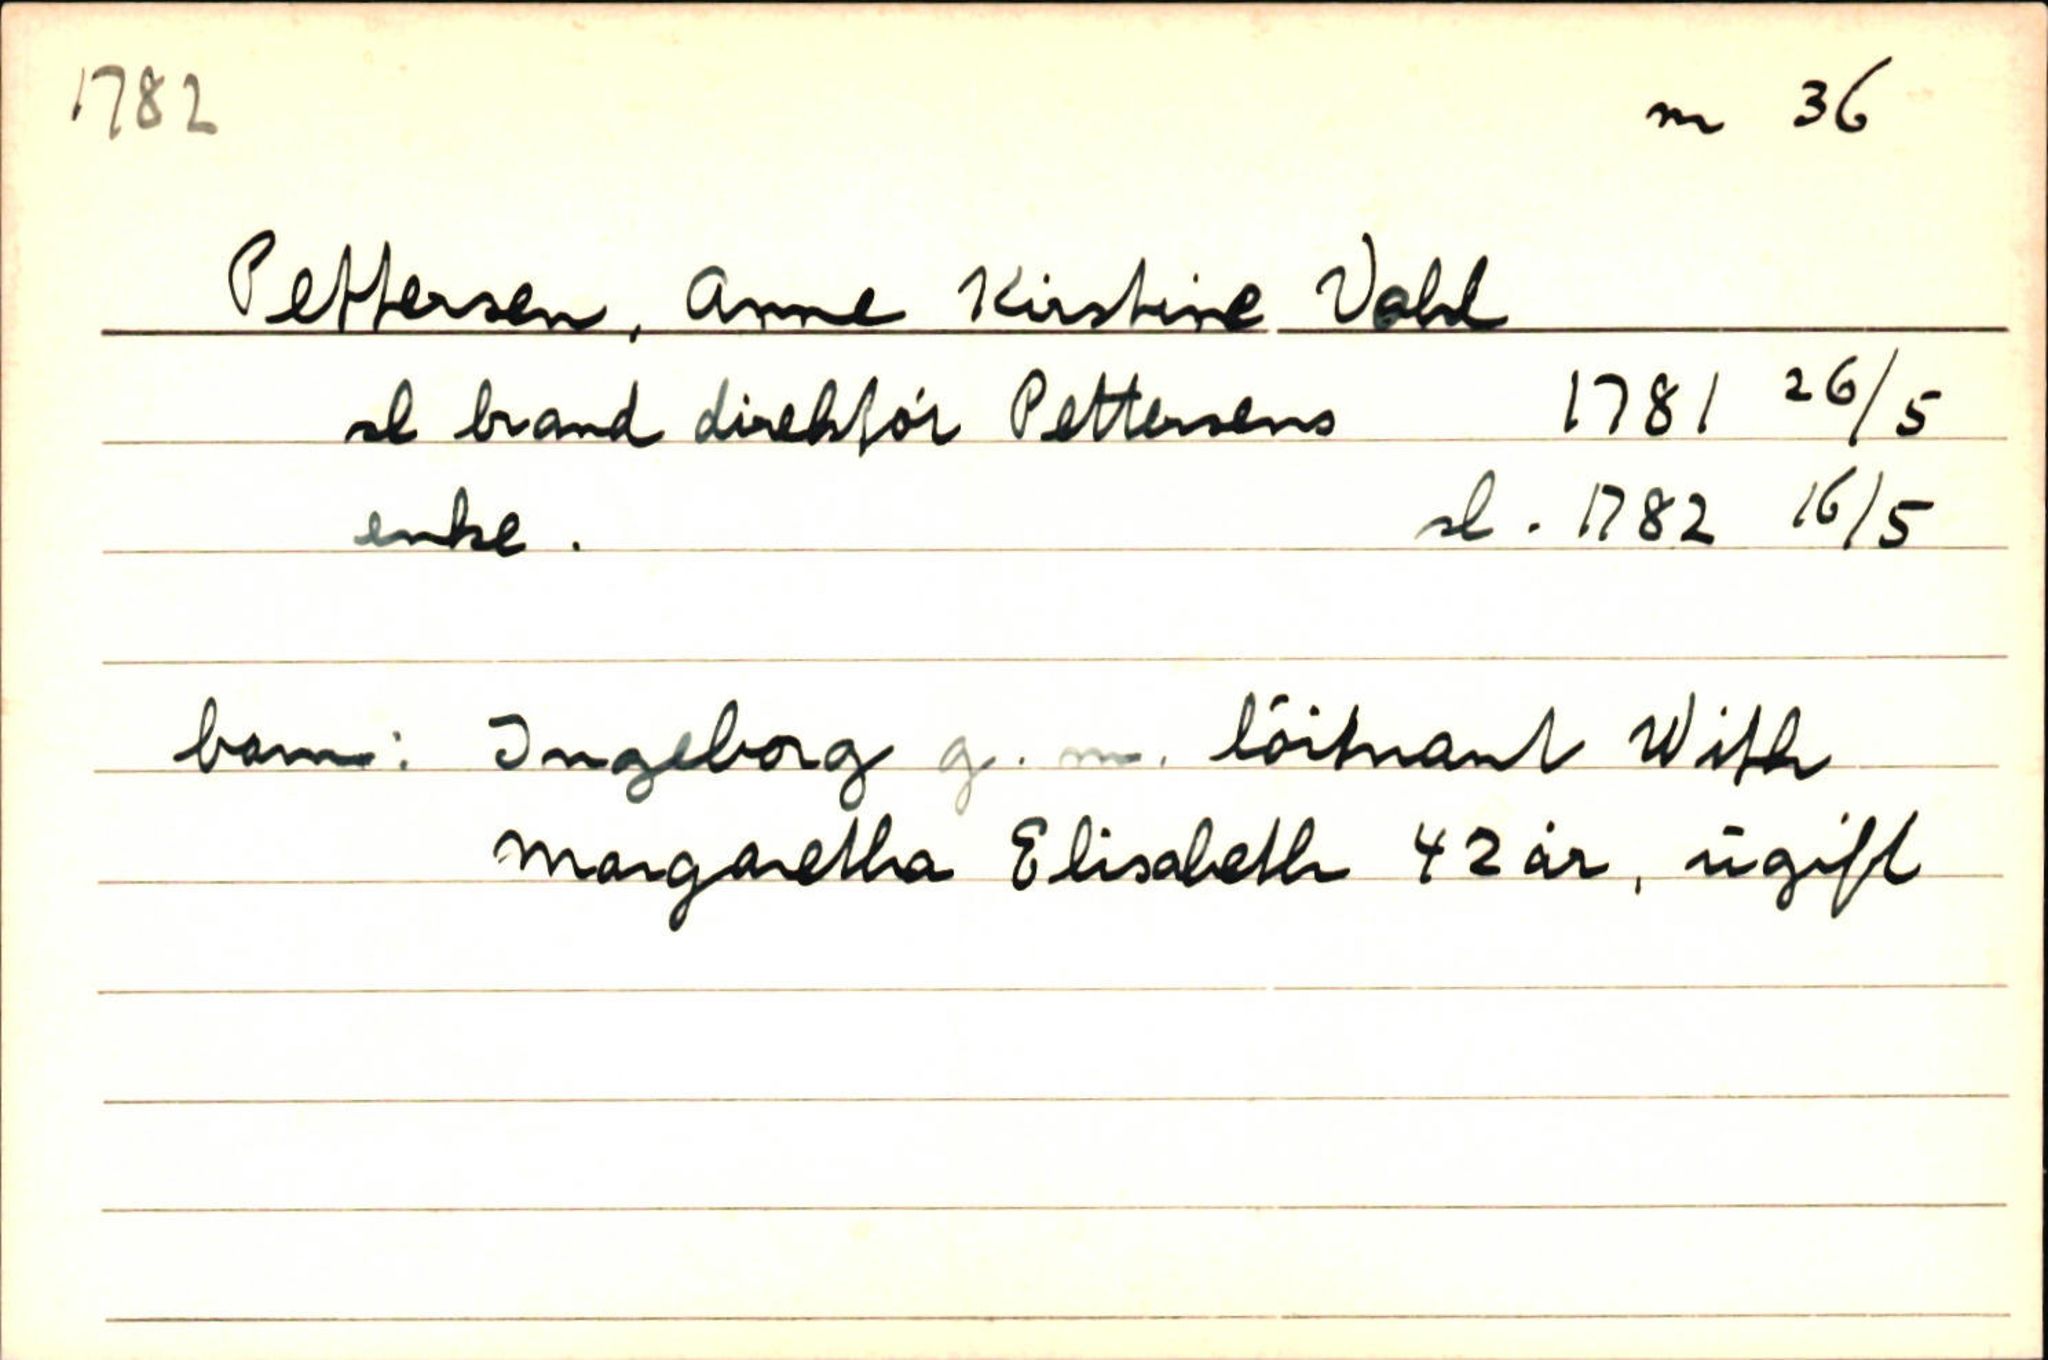 1782 m 36
Pettersen, Anne Kirstine Vahl
sl brand direktör Pettersens 1781 26/5
enke. sl. 1782 16/5
barn: Ingeborg g. m. löitnant With
Margaretha Elisabeth 42 år, ugift